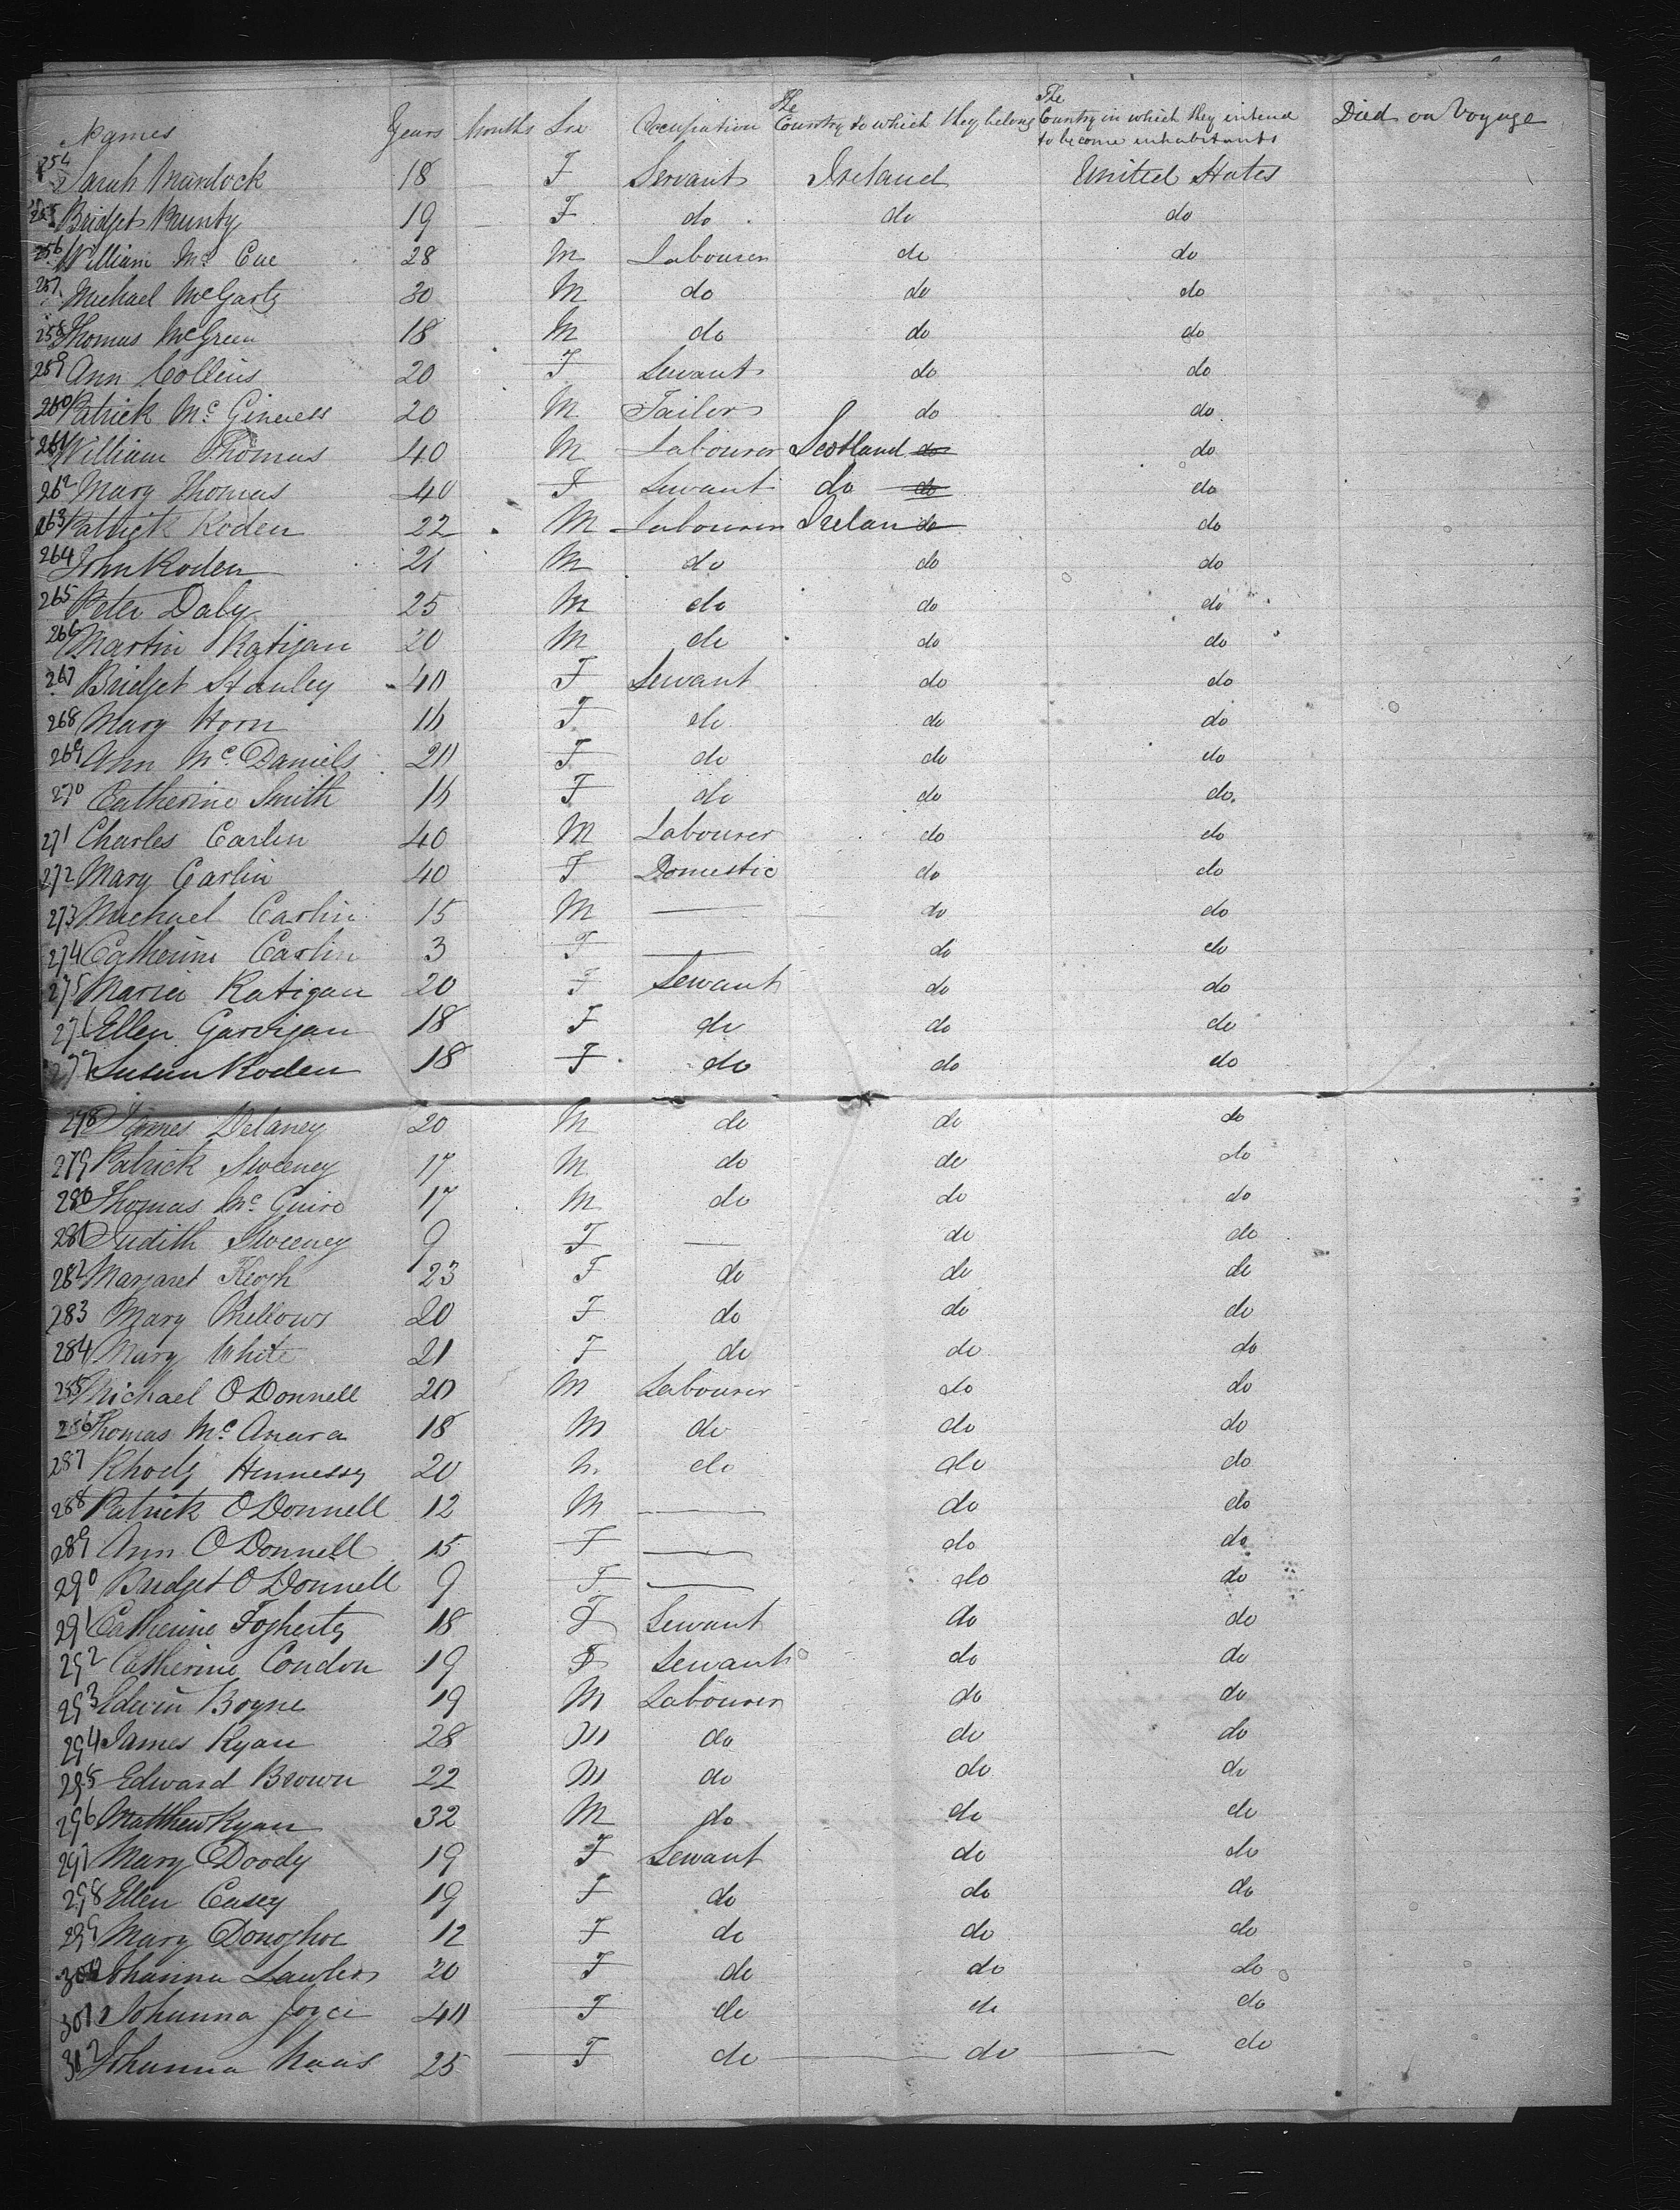 Names Years Months Sex Occupation The Country to which they belong The Country in which they intend to become inhabitants Died on Voyage
254 Sarah Murdock 18 F Servant Ireland United States
255 Bridget 19 F do do do
256 William Mc Cue 28 M Labourer do do
257 Michael McGarty 30 M do do do
258 Thomas McGreen 18 M do do do
259 Ann Collins 20 F Servant do do
260 Patrick Mc Giness 20 M Tailor do do
261 William Thomas 40 M Labourer Scotland do do
262 Mary Thomas 40 F Servant do do do
263 Patrick Roden 22 M Labourer Irelan do do
264 John Roden 21 M do do do
265 Peter Daly 25 M do do do
266 Martin Ratigan 20 M do do do
267 Bridget Stanley 40 F Servant do do
268 Mary Horn 16 F do do do
269 Ann Mc Daniels 20 F do do do
270 Catherine Smith 16 F do do do
271 Charles Carlin 40 M Labourer do do
272 Mary Carlin 40 F Domestic do do
273 Michael Carlin 15 M — do do
274 Catherine Carlin 3 F — do do
275 Maria Ratigan 20 F Servant do do
276 Ellen Garrigan 18 F do do do
277 Susan Roden 18 F do do do
278 James Delaney 20 M do do do
279 Patrick Sweeney 17 M do do do
280 Thomas Mc Guire 17 M do do do
281 Judith Sweeney 9 F — do do
282 Margaret Keogh 23 F do do do
283 Mary Mellows 20 F do do do
284 Mary White 21 F do do do
285 Michael O Donnell 20 M Labourer do do
286 Thomas Mc Anara 18 M do do do
287 Rhody Hennessy 20 M do do do
288 Patrick O Donnell 12 M — do do
289 Ann O Donnell 15 F — do do
290 Bridget O Donnell 9 F — do do
291 Catherine Fogherty 18 F Servant do do
292 Catherine Condon 19 F Servant do do
293 Edwin Boyne 19 M Labourer do do
294 James Ryan 28 M do do do
295 Edward Brown 22 M do do do
296 Matthew Ryan 32 M do do do
297 Mary Doody 19 F Servant do do
298 Ellen Casey 19 F do do do
299 Mary Donoghoe 12 F do do do
300 Johanna Lawler 20 F do do do
301 Johanna Joyce 40 F do do do
302 Johanna Naas 25 F do do do